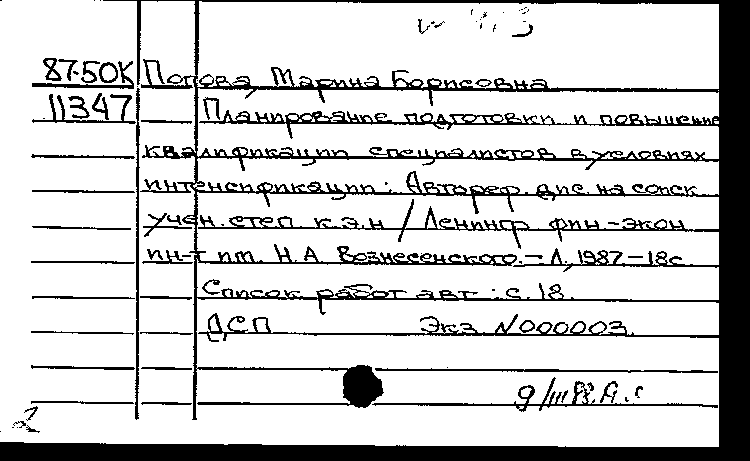 87-50К Попова, Марина Борисовна
11347 Планирование подготовки и повышение
квалификации специалистов в условиях
интенсификации: Автореф. дис. на соиск
учен. степ. к.э.н / Ленингр фин.-экон
ин-т им. Н.А. Вознесенского. - Л., 1987. - 18с.
Список работ авт.: с. 18.
ДСП Экз N000003.
9/III 88
2